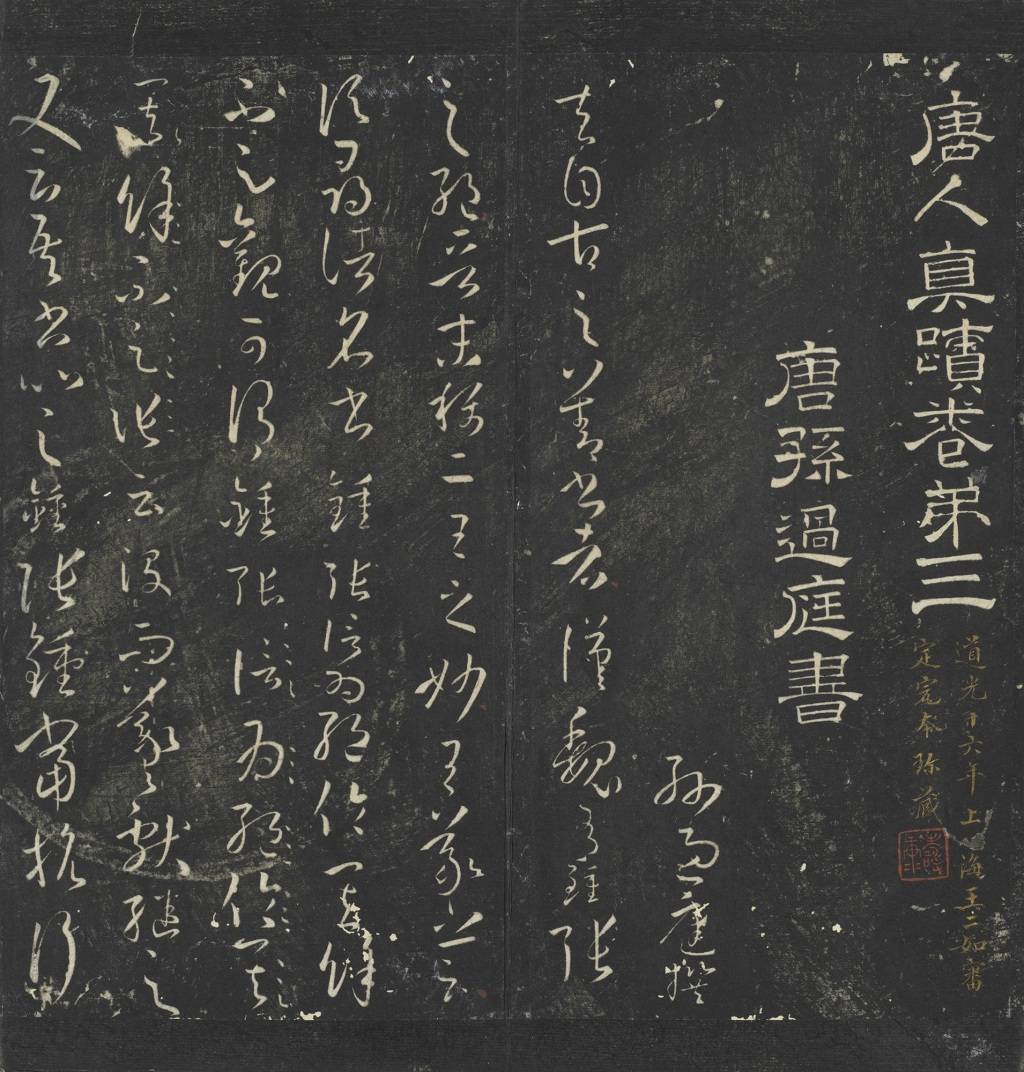 唐人真蹟卷弟三
道光十六年上海王二如審
定完本珎藏
唐孫過庭書
孫過庭撰
夫自古之善書者漢魏有鍾張
之絕晉末稱二王之妙王羲之云
頃尋諸名書鍾張信為絕倫其餘
不足觀可謂鍾張信為絕倫其
餘不足觀云沒而羲獻繼之
又云吾書比之鍾張鍾當抗行